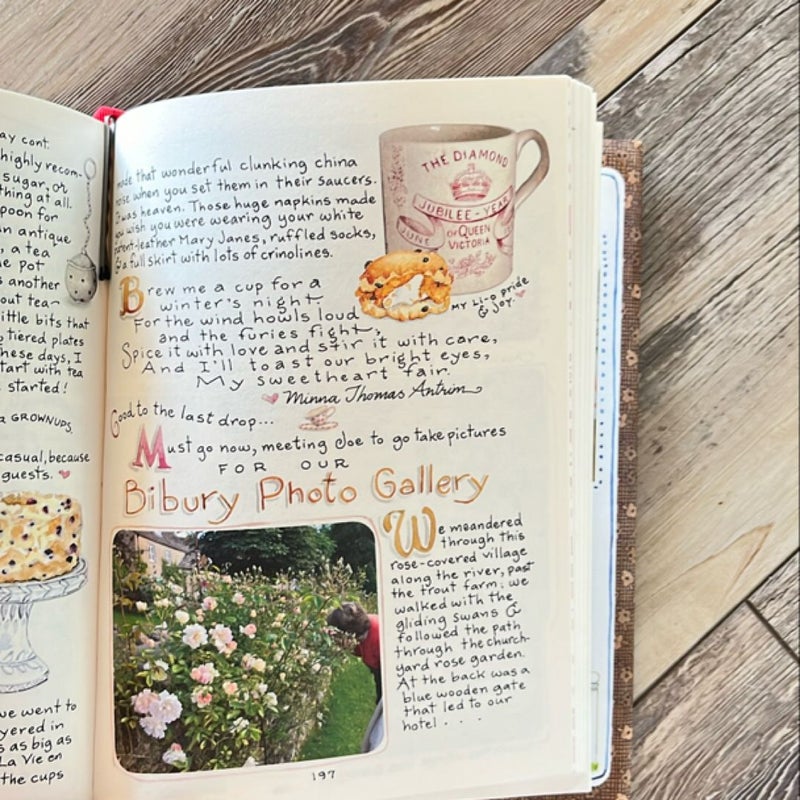 ay cont.
highly recom-
sugar, or
thing at all.
poon for
an antique
, a tea
e pot
s another
out tea-
ittle bits that
tiered plates
hese days, I
tart with tea
started!
a GROWNUPS,
casual, because
guests.
we went to
yered in
s as big as
La Vie en
the cups
made that wonderful clunking china
noise when you set them in their saucers.
It was heaven. Those huge napkins made
you wish you were wearing your white
patent-leather Mary Janes, ruffled socks,
& a full skirt with lots of crinolines.
THE DIAMOND
JUBILEE-YEAR
JUNE
OF QUEEN
VICTORIA
MY LI-O PRIDE
& JOY.
Brew me a cup for a
winter's night
For the wind howls loud
and the furies fight,
Spice it with love and stir it with care,
And I'll toast our bright eyes,
My sweetheart fair.
Minna Thomas Antrim
Good to the last drop...
Must go now, meeting Joe to go take pictures
FOR OUR
Bibury Photo Gallery
We meandered
through this
rose-covered village
along the river, past
the trout farm; we
walked with the
gliding swans &
followed the path
through the church-
yard rose garden.
At the back was a
blue wooden gate
that led to our
hotel . . .
197